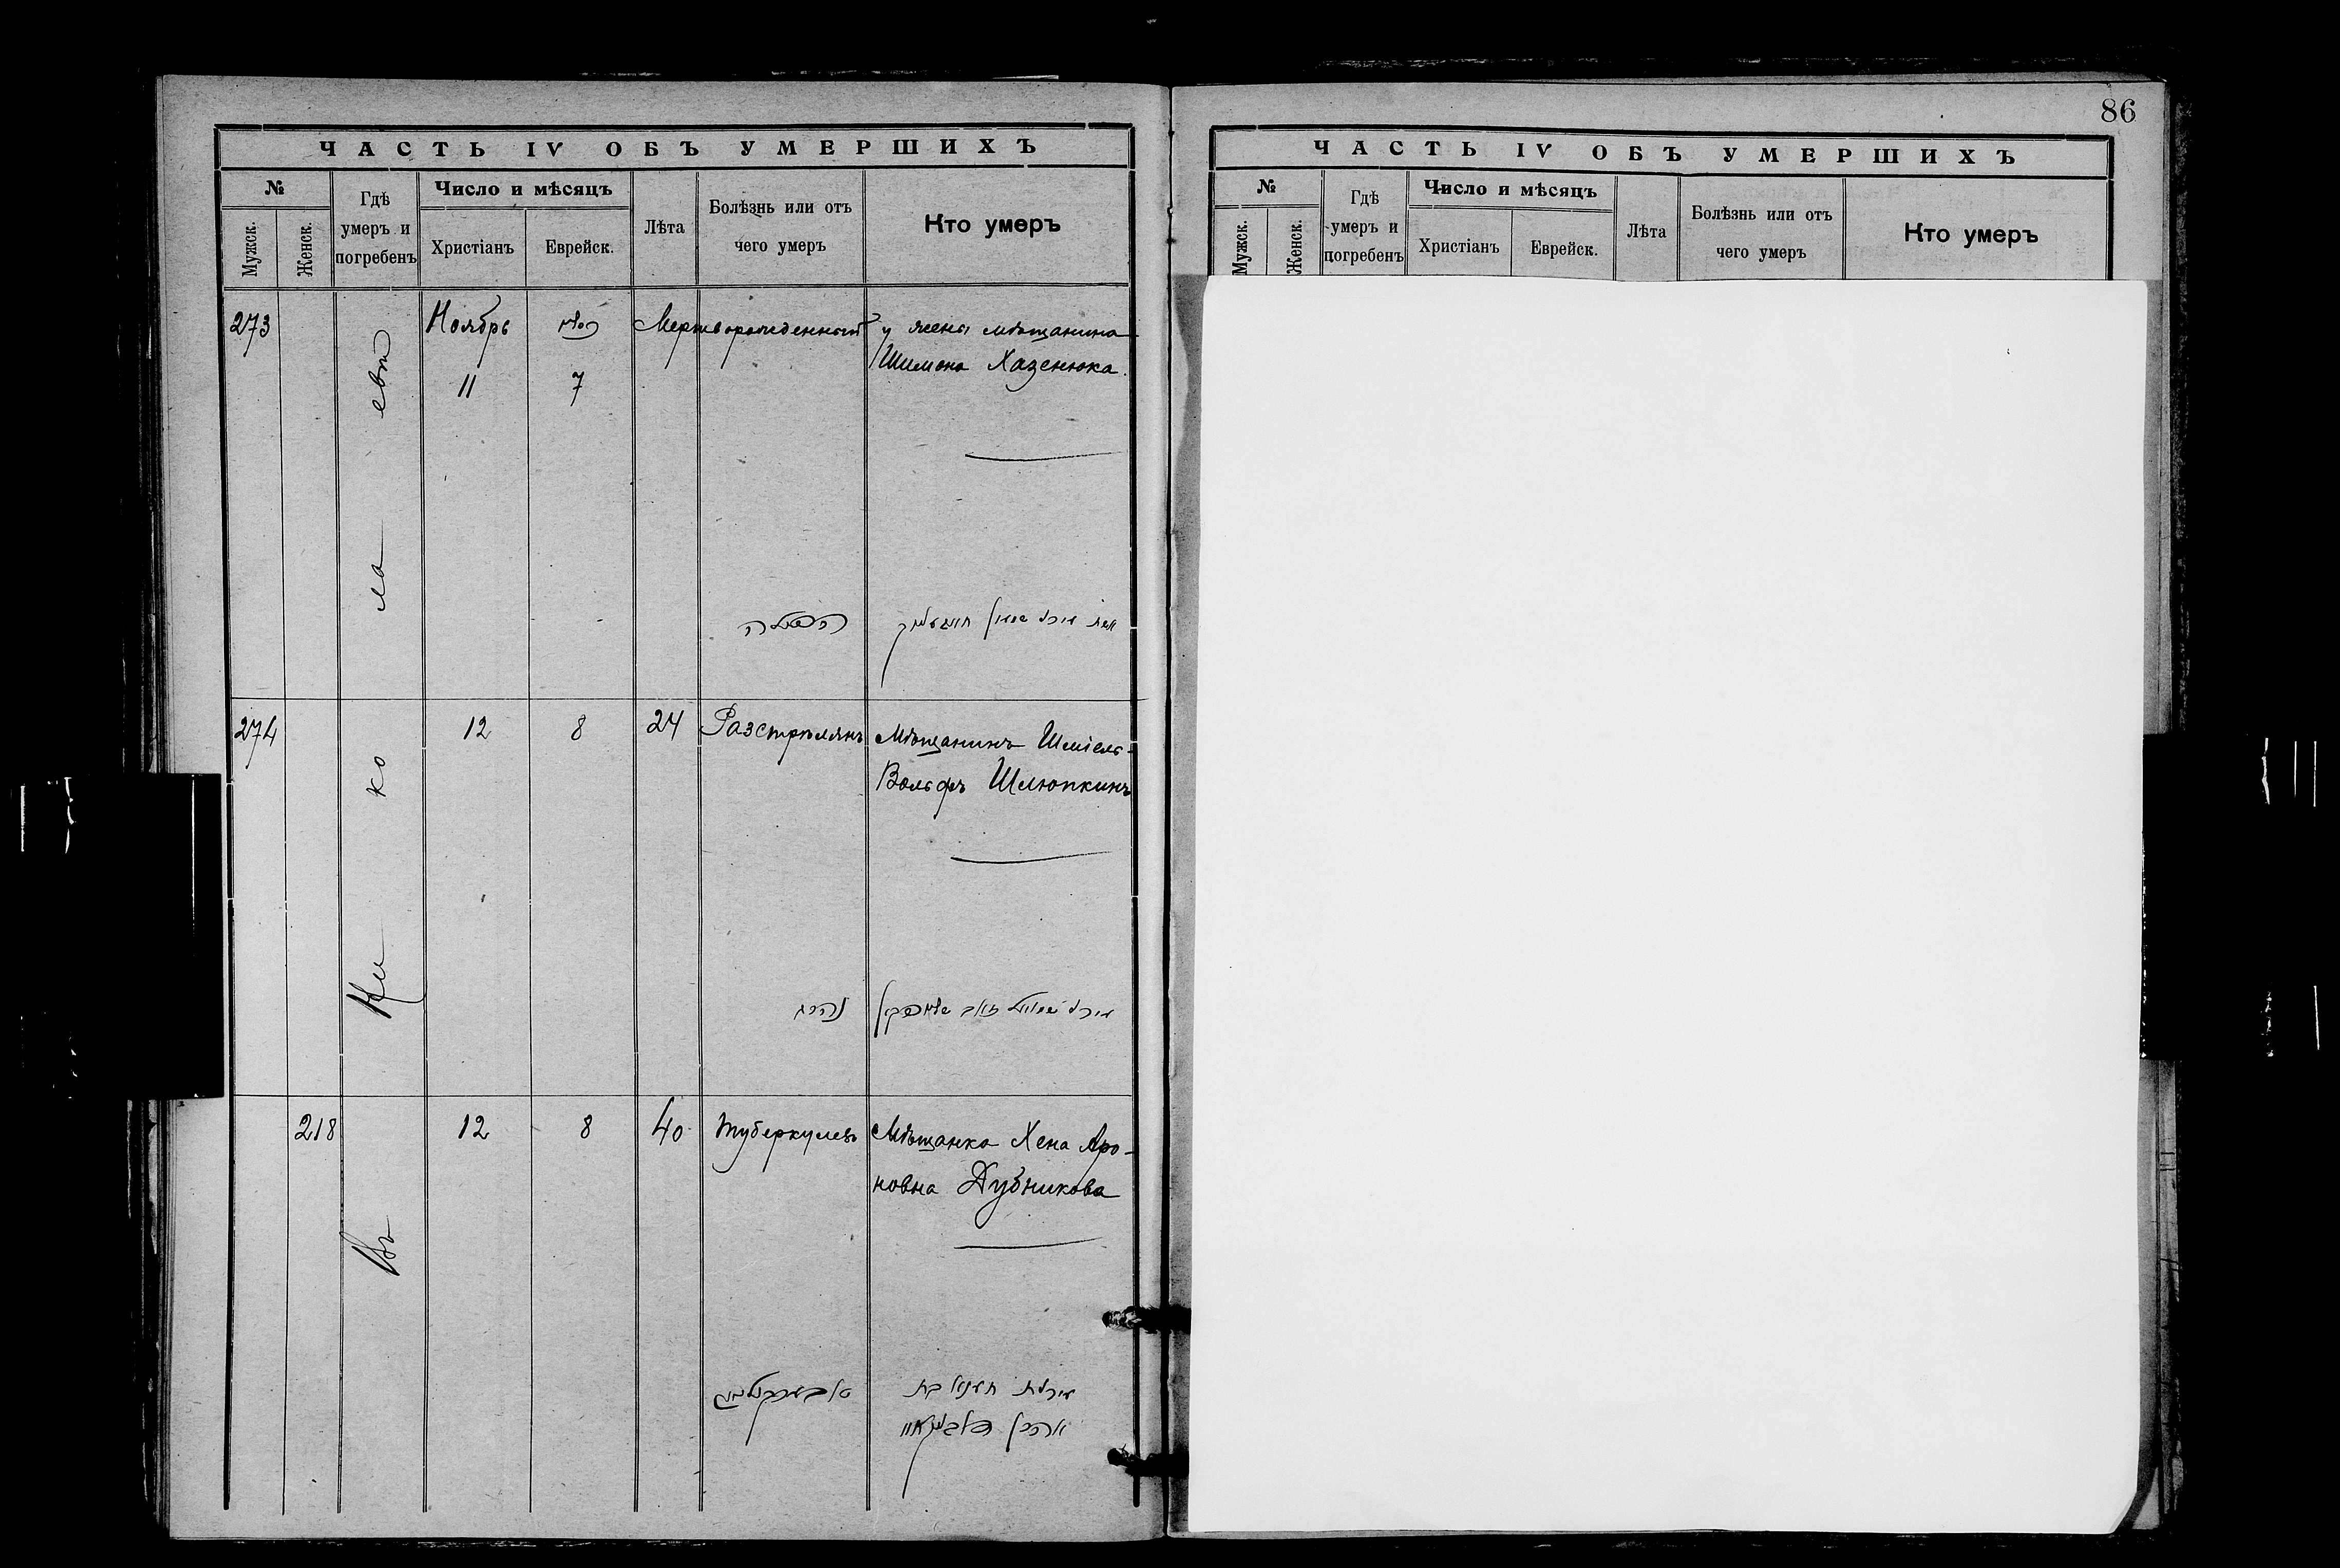 ЧАСТЬ IV ОБЪ УМЕРШИХЪ
№
Мужск.
Женск.
Гдѣ
умеръ и
погребенъ
Число и мѣсяцъ
Христіанъ
Еврейск.
Лѣта
Болѣзнь или отъ
чего умеръ
Кто умеръ
273
Ноябрь
11
7
Мертворожденный
у жены мѣщанина
Шимона Хазенюка
274
12
8
24
Разстрѣлянъ
Мѣщанинъ Шміель-
Вольфъ Шлюпкинъ
218
12
8
40
туберкулезъ
Мѣщанка Хена Аро-
новна Дубникова
Въ Николаевѣ
86
ЧАСТЬ IV ОБЪ УМЕРШИХЪ
№
Мужск.
Женск.
Гдѣ
умеръ и
погребенъ
Число и мѣсяцъ
Христіанъ
Еврейск.
Лѣта
Болѣзнь или отъ
чего умеръ
Кто умеръ